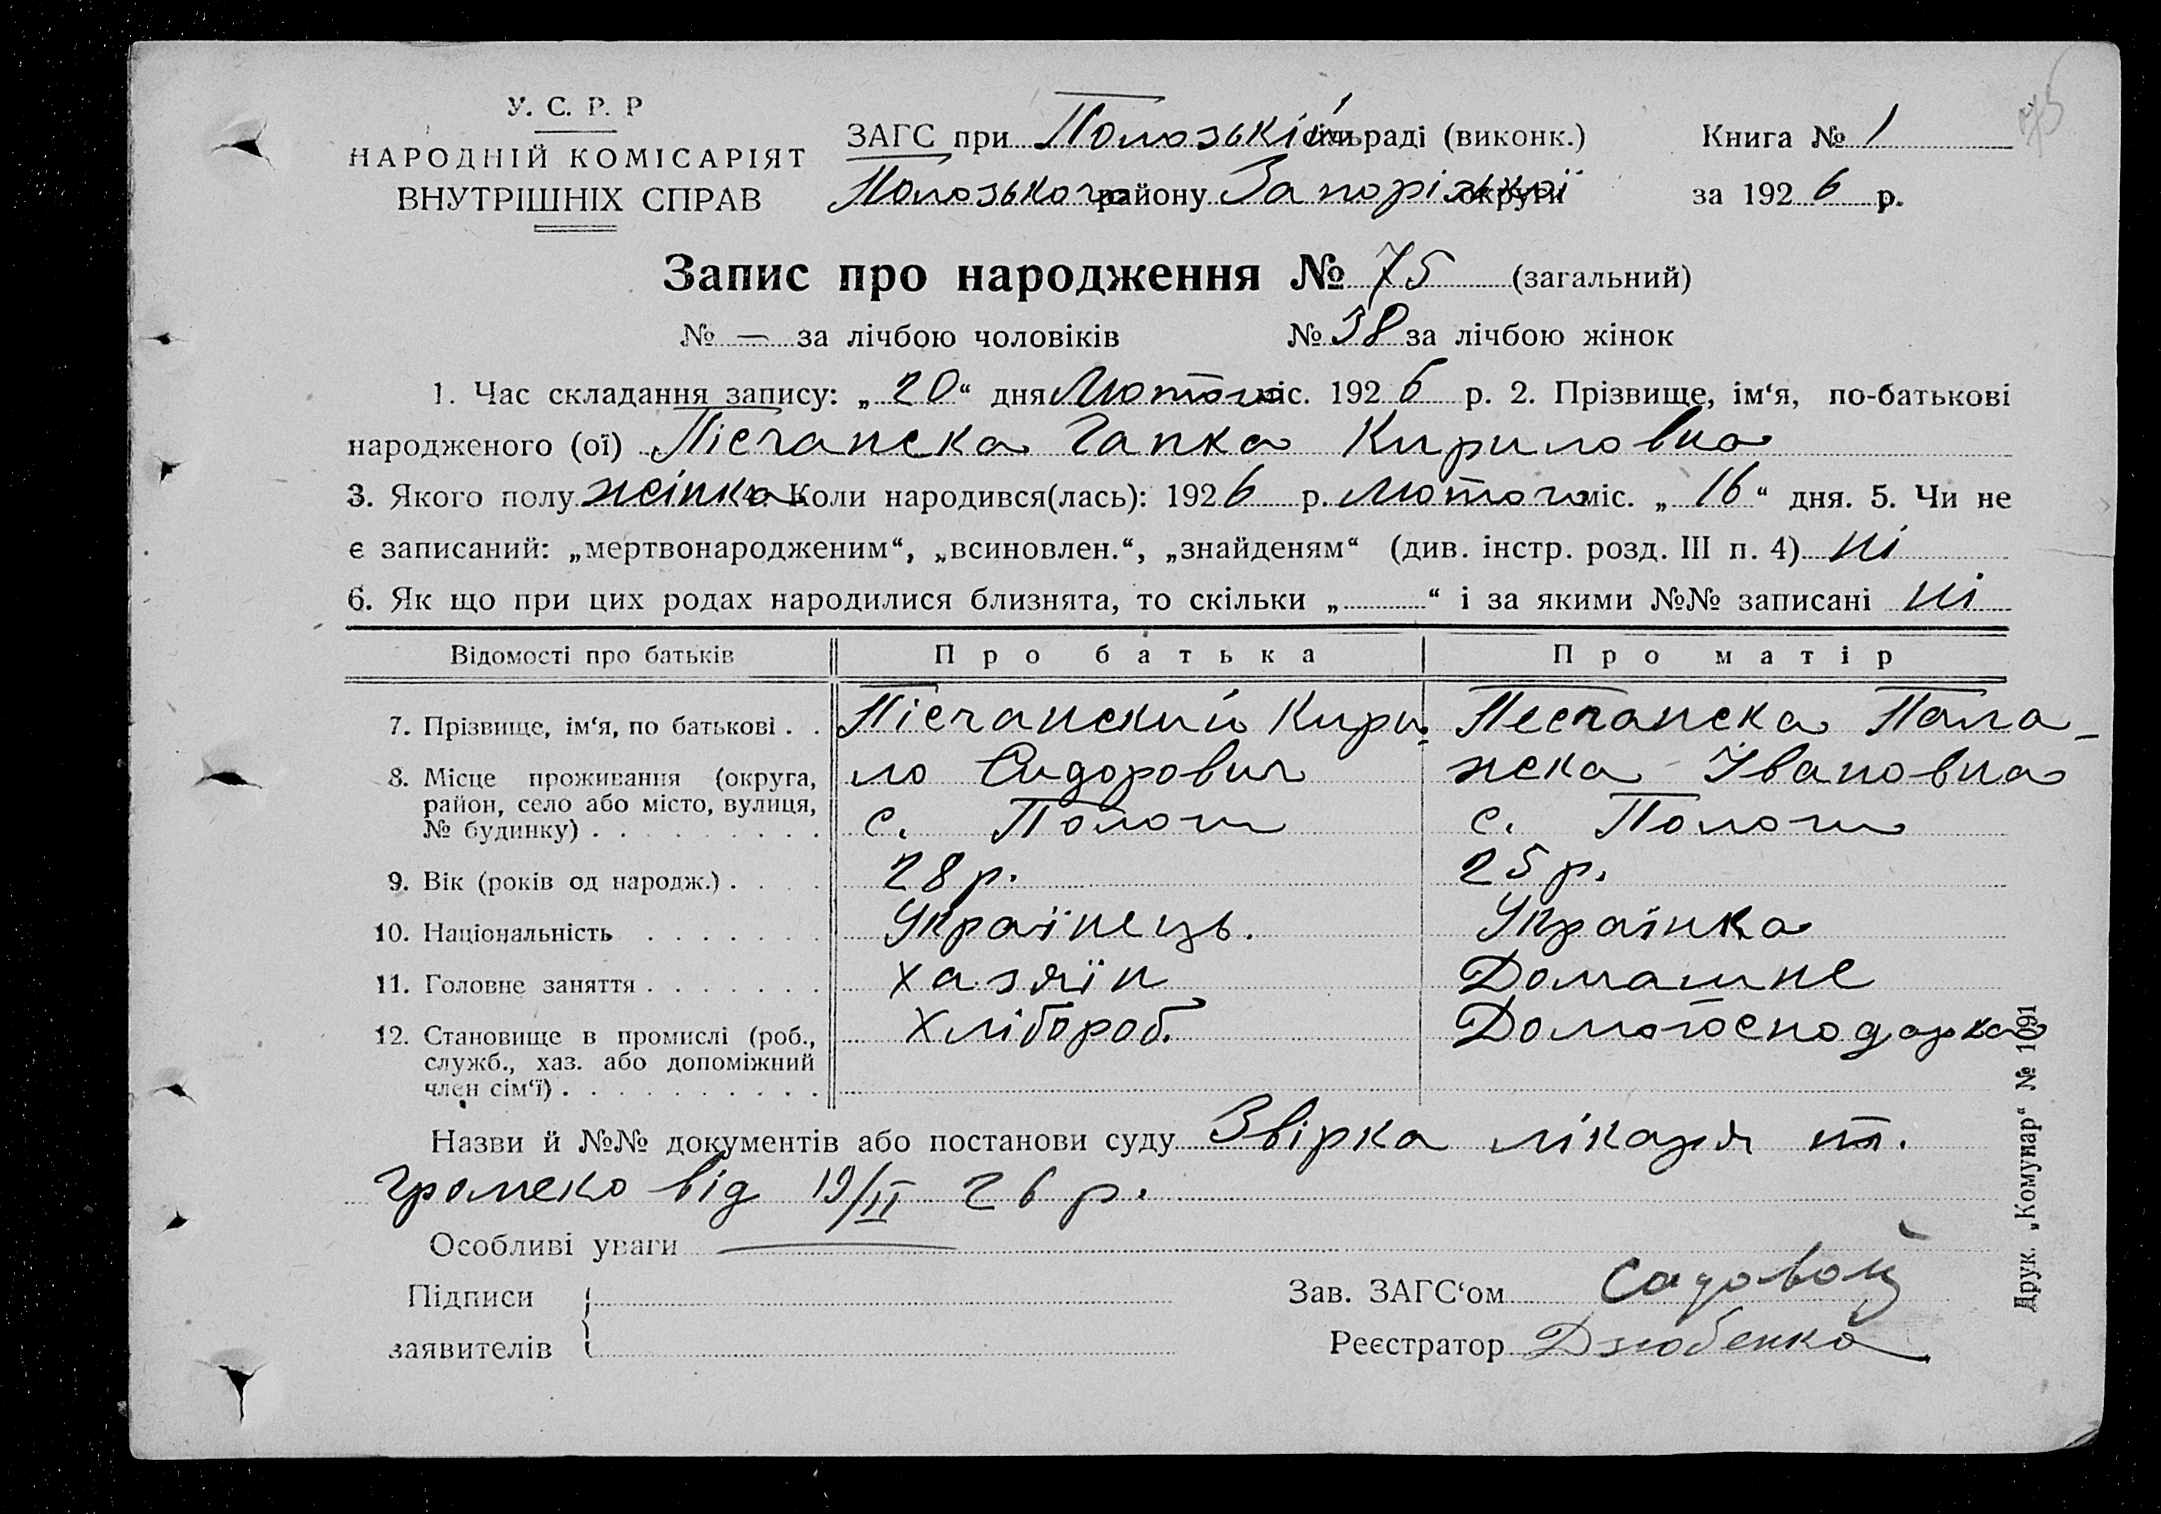 У. С. Р. Р
НАРОДНІЙ КОМІСАРІЯТ
ВНУТРІШНІХ СПРАВ
ЗАГС при Полозській сільраді (виконк.)
Полозького району Запорізької округи
Книга № 1
за 1926 р.
75
Запис про народження № 75 (загальний)
№ — за лічбою чоловіків № 38 за лічбою жінок
1. Час складання запису: „20“ дня Лютого міс. 1926 р. 2. Прізвище, ім‘я, по-батькові
народженого (ої) Пісчанска Гапка Кириловна
3. Якого полу жінка 4. Коли народився(лась): 1926 р. Лютого міс. „16“ дня. 5. Чи не
є записаний: „мертвонародженим“, „всиновлен.“, „знайденям“ (див. інстр. розд. III п. 4) ні
6. Як що при цих родах народилися близнята, то скільки „ “ і за якими №№ записані ні
Відомості про батьків Про батька Про матір
7. Прізвище, ім‘я, по батькові . . Пісчанский Кири- Песчанска Пала-
8. Місце проживання (округа, ло Сидорович жска Івановна
район, село або місто, вулиця,
№ будинку) . с. Пологи с. Пологи
9. Вік (років од народж.) . 28 р. 25 р.
10. Національність Українець. Українка
11. Головне заняття . хазяїн Домашнє
12. Становище в промислі (роб., Хлібороб. Домогосподарка
служб., хаз. або допоміжний
член сім‘ї) .
Назви й №№ документів або постанови суду Звірка лікаря т.
Громеко від 19/II 26 р.
Особливі уваги —
Підписи
заявителів
Зав. ЗАГС‘ом Садовой
Реєстратор Дзюбенко
Друк. „Комунар“ № 1091